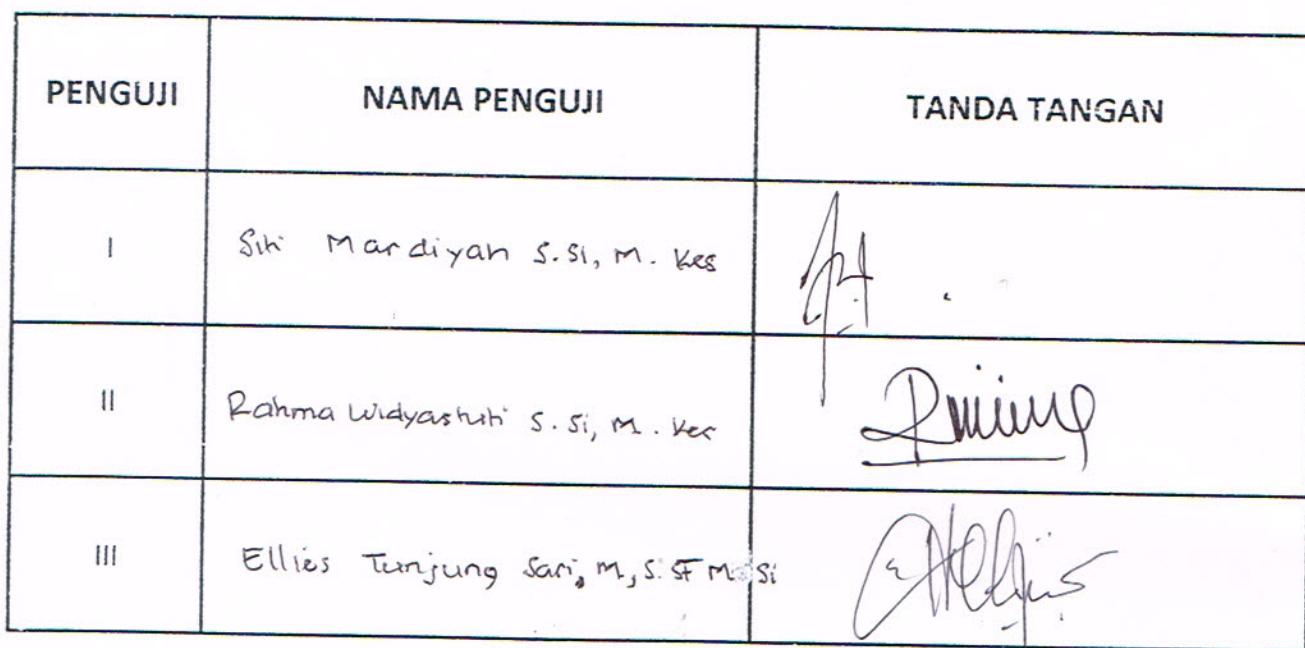 PENGUJI NAMA PENGUJI TANDA TANGAN
I Siti Mardiyah S.Si, M. Kes
II Rahma Widyastuti S.Si, M. Kes
III Ellies Tunjung Sari, M, S.ST M.Si